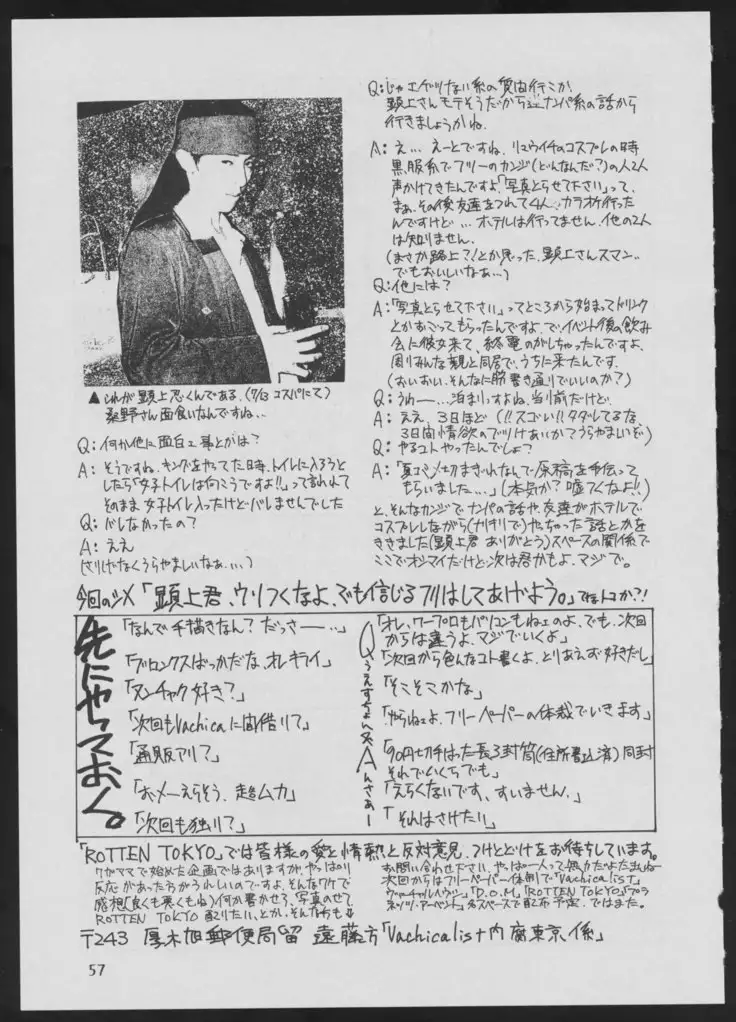 ▲これが顕上忍くんである.(7/13 コスパにて)
桑野さん面食いなんですね...
Q:何か他に面白い事とかは?
A:そうですね、キングをやってた時、トイレに入ろうと
したら「女子トイレは向こうですよ!!」って言われて
そのまま女子トイレ入ったけどバレませんでした
Q:バレなかったの?
A:ええ
(さりげなくうらやましいなぁ...)
Q:じゃエゲツない系の質問行こか.
顕上さんモテそうだから逆ナンパ系の話から
行きましょうかね.
A:え... えーとですね、リュウイチのコスプレの時
黒服系でフリーのカンジ(どんなんだ?)の人2人
声かけてきたんですよ、「写真とらせて下さい」って、
まぁ、その後友達をつれて4人でカラオケ行った
んですけど...ホテルは行ってません、他の2人
は知りません。
(まさか路上?!とか思った、顕上さんスマン..
でもおいしいなぁ...)
Q:他には?
A:「写真とらせて下さい」ってところから始まってドリンク
とかおごってもらったんですよ、で、イベント後の飲み
会に彼女来て、終電のがしちゃったんですよ、
周りみんな親と同居で、うちに来たんです。
(おいおい、そんなに筋書き通りでいいのか?)
Q:うわー...泊まりっすよね、当り前だけど
A:ええ、3日ほど(!!スゴい!!タダレてるな、
3日間情欲のでづけあいか?うらやまいぞ)
Q:やるコトやったんでしょ?
A:「夏コミ〆切まぎわなんで原稿を手伝って
もらいました...」(本気か?嘘つくなよ!!)
と、そんなカンジでナンパの話や、友達がホテルで
コスプレしながら(カリギリで)やっちゃった話とかを
ききました(顕上君ありがとう)スペースの関係で
ここでオシマイだけど次は君かもよ、マジで。
今回のシメ「顕上君、ウソつくなよ、でも信じるフリはしてあげよう。」てなトコか?!
先にやっておく。
「なんで手描きなん?だっさー...」
「ブロンクスばっかだな、オレキライ」
「ヌンチャク好き?」
「次回もVachicaに間借りて」
「通販アリ?」
「おメーえらそう、超ムカ」
「次回も独り?」
Qうぇすちょん&Aんさぁー
「オレ、ワープロもパソコンもねェのよ、でも、次回
からは違うよ、マジでいくよ」
「次回から色んなコト書くよ、とりあえず好きだし」
「そこそこかな」
「やらねェよ、フリーペーパーの体裁でいきます」
「90円切手はった長3封筒(住所書込済)同封
それでいくらでも」
「えらくないです、すいません。」
「それはさけたい」
「ROTTEN TOKYO」では皆様の愛と情熱と反対意見、つけとどけをお待ちしています。
ワガママで始めた企画ではありますが、やっぱり
反応があった方がうれしいのですよ、そんなワケで
感想(良くも悪くもね)何か書かせろ、写真のせて
ROTTEN TOKYO 配りたい、とか、そんなんも
お問い合わせ下さい、やっぱ一人って無力だよたまんね
次回からはフリーペーパー体制で「Vachicalist」
「D.O.M」「ROTTEN TOKYO」
各スペースで配布予定、ではまた。
〒243 厚木旭郵便局留 遠藤方「Vachicalist内 腐東京係」
57